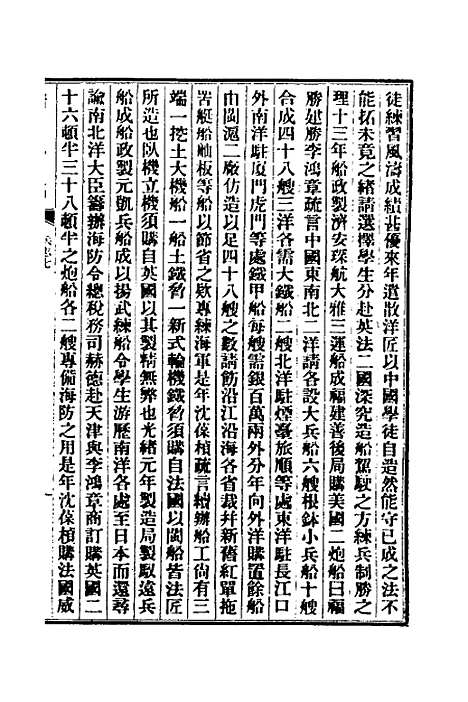 徒練習風濤成績甚優來年遣散洋匠以中國學徒自造然能守已成之法不
能拓未竟之緒請選擇學生分赴英法二國深究造船駕駛之方練兵制勝之
理十三年船政製濟安琛航大雅三運船成福建善後局購美國二炮船曰福
勝建勝李鴻章疏言中國東南北三洋請各設大兵船六艘根鉢小兵船十艘
合成四十八艘三洋各需大鐵船二艘北洋駐煙臺旅順等處東洋駐長江口
外南洋駐廈門虎門等處鐵甲船每艘需銀百萬兩外分年向外洋購置餘船
由閩滬二廠仿造以足四十八艘之數請飭沿江沿海各省裁幷新舊紅單拖
罟艇船舢板等船以節省之欵專練海軍是年沈葆楨疏言續辦船工尙有三
端一挖土大機船一船土鐵脅一新式輪機鐵脅須購自法國以閩船皆法匠
所造也臥機立機須購自英國以其製精無弊也光緒元年製造局製馭遠兵
船成船政製元凱兵船成以揚武練船令學生游歷南洋各處至日本而還尋
諭南北洋大臣籌辦海防令總稅務司赫德赴天津與李鴻章商訂購英國二
十六頓半三十八頓半之炮船各二艘專備海防之用是年沈葆楨購法國威
兵志七